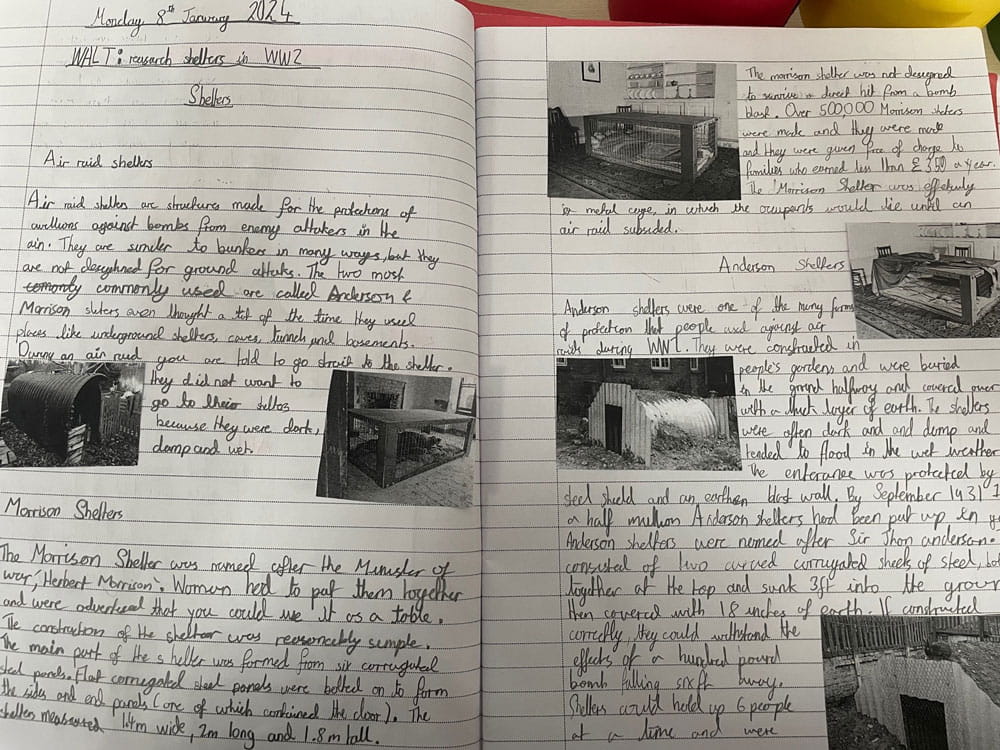 Monday 8th January 2024
WALT: reasearch shelters in WW2
Shelters
Air raid shelters
Air raid shelters are structures made for the protections of
civillions against bombs from enemy attakers in the
air. They are similer to bunkers in many ways, but they
are not desighned for ground attaks. The two most
comonly commonly used are called Anderson &
Morrison sluters even thought a lot of the time they used
places like underground shelters, caves, tunnels and basements.
During an air raid you are told to go strait to the shelter.
they did not want to
go to their
because they were dark,
damp and wet.
Morrison Shelters
The Morrison Shelter was named after the Minister of
war, 'Herbert Morrison'. Women had to put them together
and were advertised that you could use it as a table.
The construction of the sheltor was reasonebly simple.
The main part of the shelter was formed from six corrugated
steel panels. Flat corrugated steel panels were bolted on to form
the sides and end panels (one of which contained the door). The
shelters measured 1.4m wide, 2m long and 1.8m tall.
The morrison shelter was not designed
to survive a direct hit from a bomb
blast. Over 500,000 Morrison
were made and they were made
and they were given free of charge to
families who earned less than £350 a year.
The Morrison Shelter was
metal cage, in which the occupants would lie until an
air raid subsided.
Anderson Shelters
Anderson shelters were one of the many forms
of protection that people used against air
raids during WW2. They were constructed in
people's gardens and were buried
in the ground halfway and covered over
with a thick layer of earth. The shelters
were often dark and and damp and
tended to flood in the wet weather
The enterance was protected by
steel shield and an earthen blast wall. By September 1931 1
a half million Anderson shelters had been put up in
Anderson shelters were named after Sir Jhon anderson.
consisted of two curved corrugated sheets of steel,
together at the top and sunk 3ft into the
then covered with 18 inches of earth. If constructed
correctly, they could withstand the
effects of a hundred pound
bomb falling six ft away.
Shelters could hold up 6 people
at a time and were